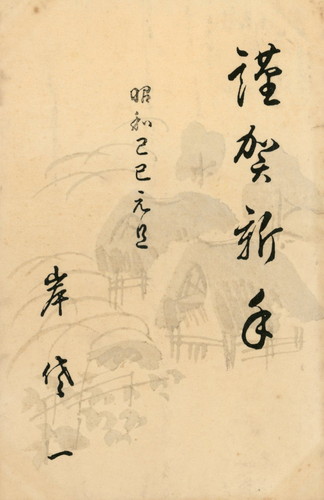 謹賀新年
昭和己巳元旦
岸偆一